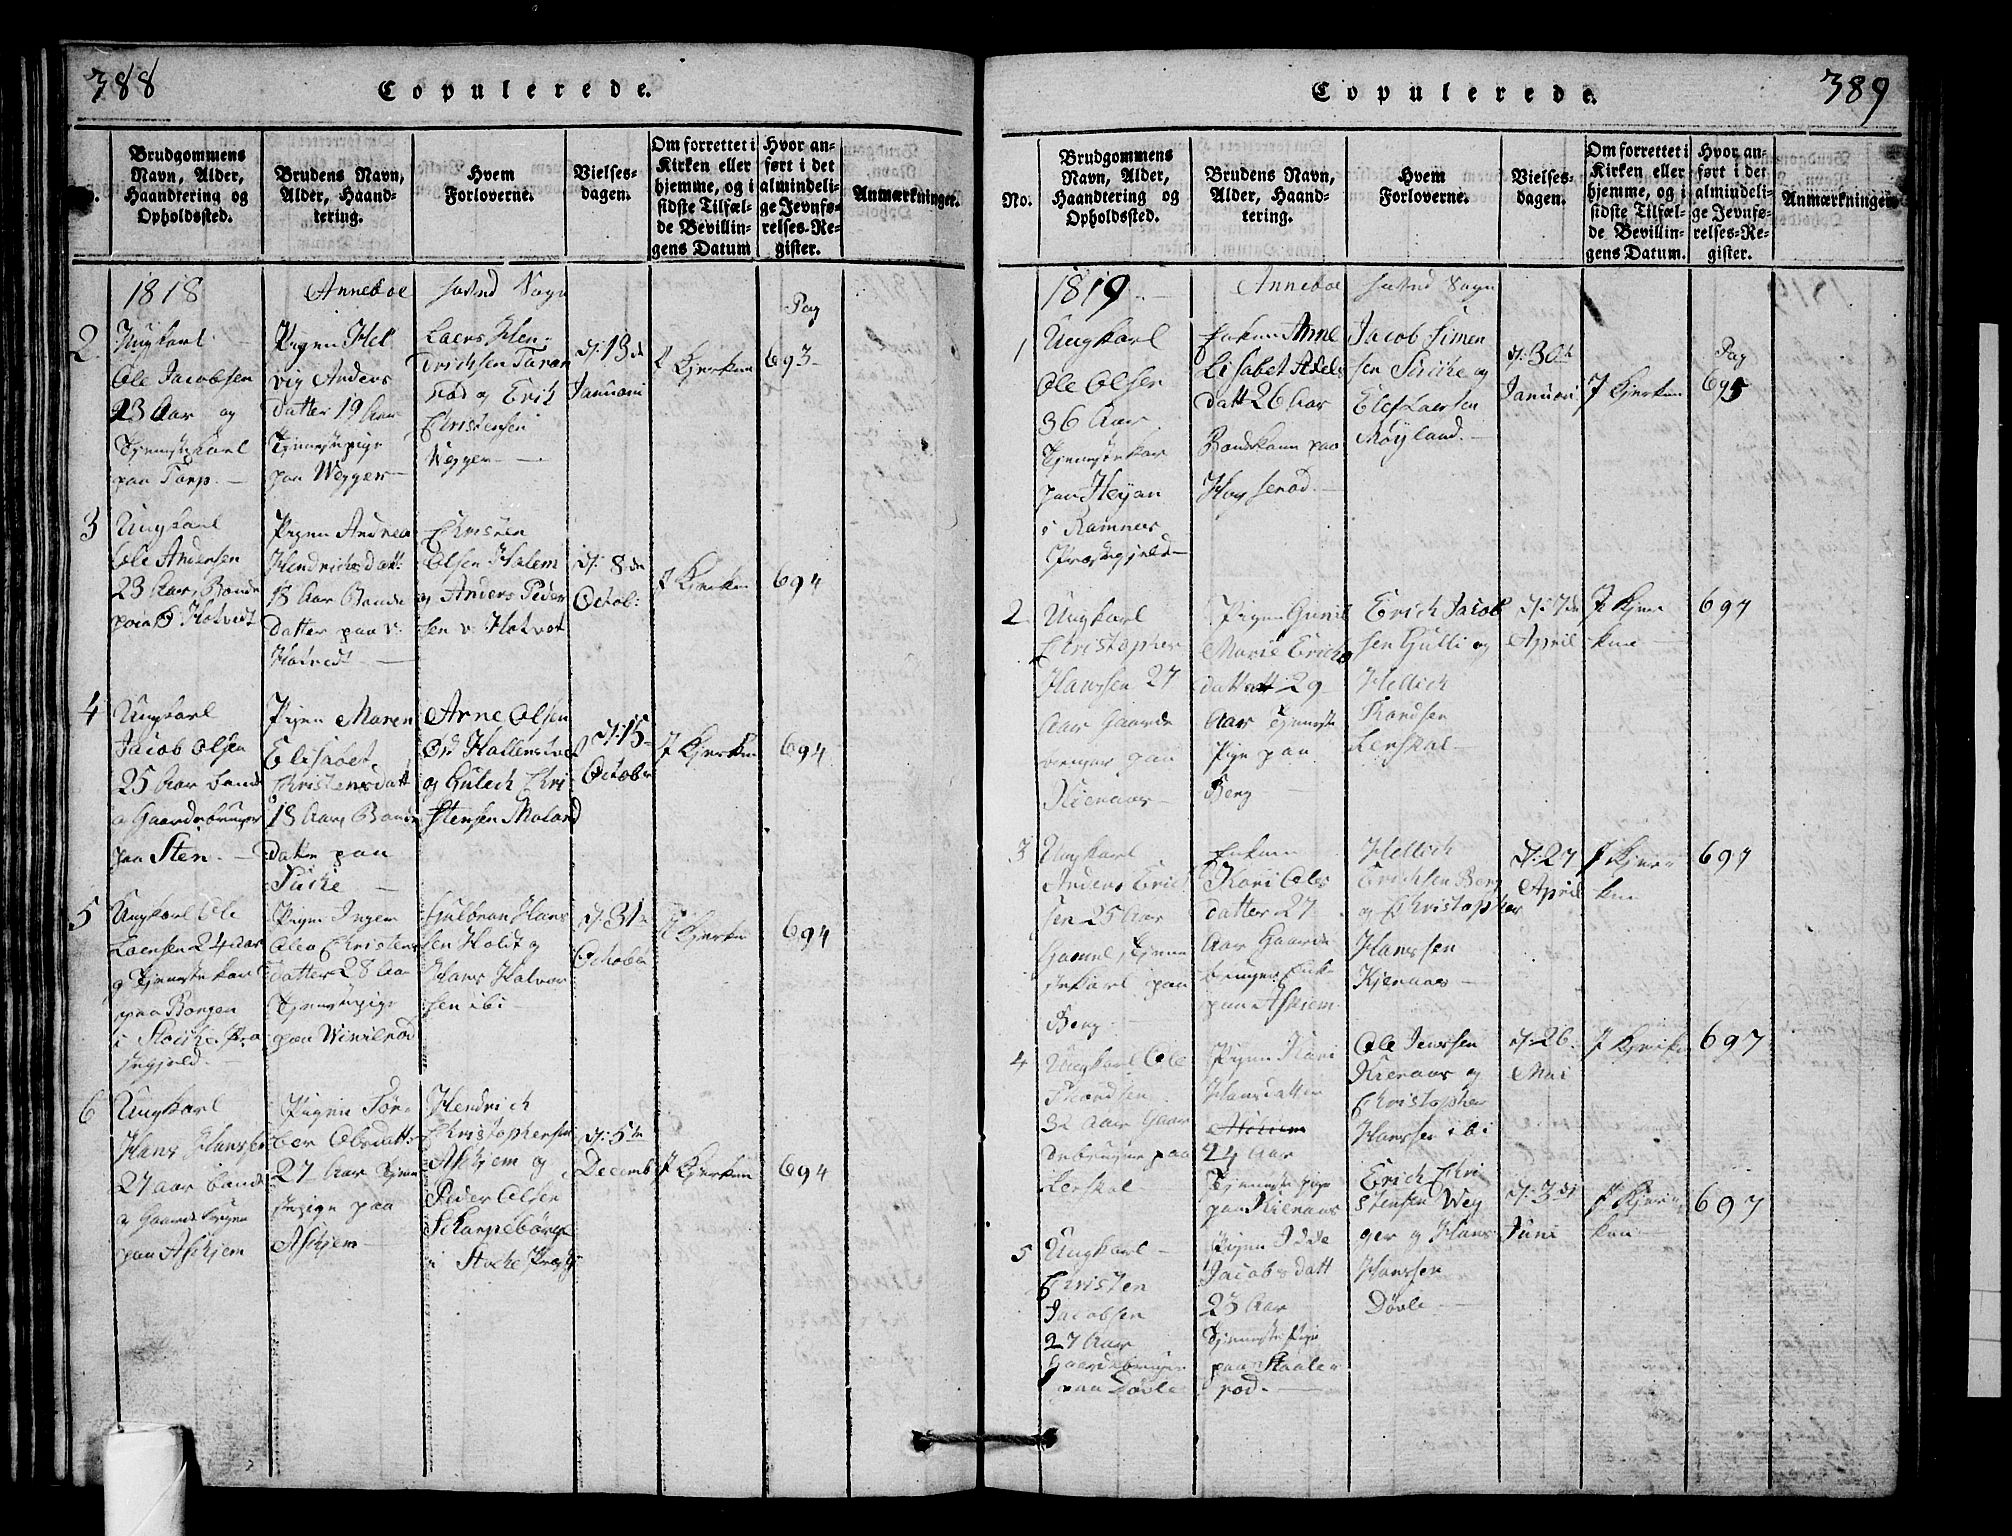 388
Copulerede.
Brudgommens
Navn, Alder,
Haandtering og
Opholdssted.
Brudens Navn,
Alder, Haand-
tering.
Hvem
Forloverne.
Vielses-
dagen.
Om forrettet i
Kirken eller
hjemme, og i
sidste Tilfæl-
de Bevillin-
gens Datum
Hvor an-
ført i det
almindeli-
ge Jevnfø-
relses-Re-
gister.
Anmærkninger.
1818
Anneboe
Sogn
Pag
2
Ungkarl
Ole Jacobsen
23 Aar og
paa Torp.
Pigen Hel
vig Anders
datter 19 Aar
paa Wegger
Laers Hen-
drichsen
og Erik
Christensen
Wegger
d: 13de
Januari
I Kjerken
693
3
Ungkarl
Ole Andersen
23 Aar, Bonde
Pigen Andrea
Hendrichsdatt:
18 Aar Bonde
datter paa
Christen
Olsen Holem
og Anders Peder
sen
d: 8de
Octob:
I Kjerken
694
4
Ungkarl
Jacob Olsen
25 Aar
og Gaardebruger
paa Sten.
Pigen Maren
Elisabet
Christensdatt
18 Aar, Bonde
datter paa
Arne Olsen
og Gulich Chri
stensen Moland
d: 15
October
I Kjerken
694
5
Ungkarl Ole
Laersen 24 Aar
og Tjenestekarl
paa Borgen
i Stocke Præ
stegjeld.
Pigen Inger
Olea Christens
datter 28 Aar
Tjenestepige
Gulbran Hans
sen Holdt og
Hans Halvor
sen ibi
d: 31te
October
I Kjerken
694
6
Ungkarl
Hans Hanssen
27 Aar bonde
og Gaardebruger
paa Askjem
Pigen Tor-
ber Olsdatt:
27 Aar Tjene
stepige paa
Askjem
Hendrich
Christophersen
Askjem og
Peder Olsen
i Stocke
d: 5te
Decemb
I Kjerken
694
389
Copulerede.
No.
Brudgommens
Navn, Alder,
Haandtering og
Opholdssted.
Brudens Navn,
Alder, Haand-
tering.
Hvem
Forloverne.
Vielses-
dagen.
Om forrettet i
Kirken eller
hjemme, og i
sidste Tilfæl-
de Bevillin-
gens Datum.
Hvor an-
ført i det
almindeli-
ge Jevnfø-
relses-Re-
gister.
Anmærkninger.
1819
Anneboe
Sogn
Pag
1
Ungkarl
Ole Olsen
36 Aar
paa Heyan
i Ramnes
Præstegjeld
Enken Anne
Lisabet Adels
datt 26 Aar
paa
Jacob Simen
sen og
Elef Laersen
Møyland.
d: 30te
Januari
I Kjerken
695
2
Ungkarl
Christopher
Hanssen 27
Aar Gaarde
paa
Kienaas
Pigen Gunil
Marie Erichs
datter 29
Aar Tjeneste
Pige paa
Berg
Erich Jacob
sen Gulli og
Hellich
Lerskal
d: 7de
April
I Kjer
ken
697
3
Ungkarl
Anders Erich
sen 25 Aar
Gammel, Tjene
stekarl paa
Berg
Enken
Kari Ols
datter 27
Aar Gaarde
bruger Enke
paa Askjem
Hellich
Erichsen Berg
og Christopher
Hanssen
Kjenaas
d: 27
April
I Kjer
ken
697
4
Ungkarl Ole
Thordsen
32 Aar Gaar
debruger paa
Lerskal
Pigen Kari
Hansdatter
24 Aar
Tjeneste pige
paa Kienaas
Ole Jenssen
Kienaas og
Christopher
Hanssen ibi
d: 26
Mai
I Kjerken
697
5
Ungkarl
Christen
Jacobsen
27 Aar
Gaardebruger
paa Døvle
Pigen Idde
Jacobsdatt
23 Aar
Tjeneste Pige
paa
rod.
Erich Chri
stensen Weg
ger og Hans
Hanssen
Døvle
d: 3di
Juni
I Kjer
ken
697